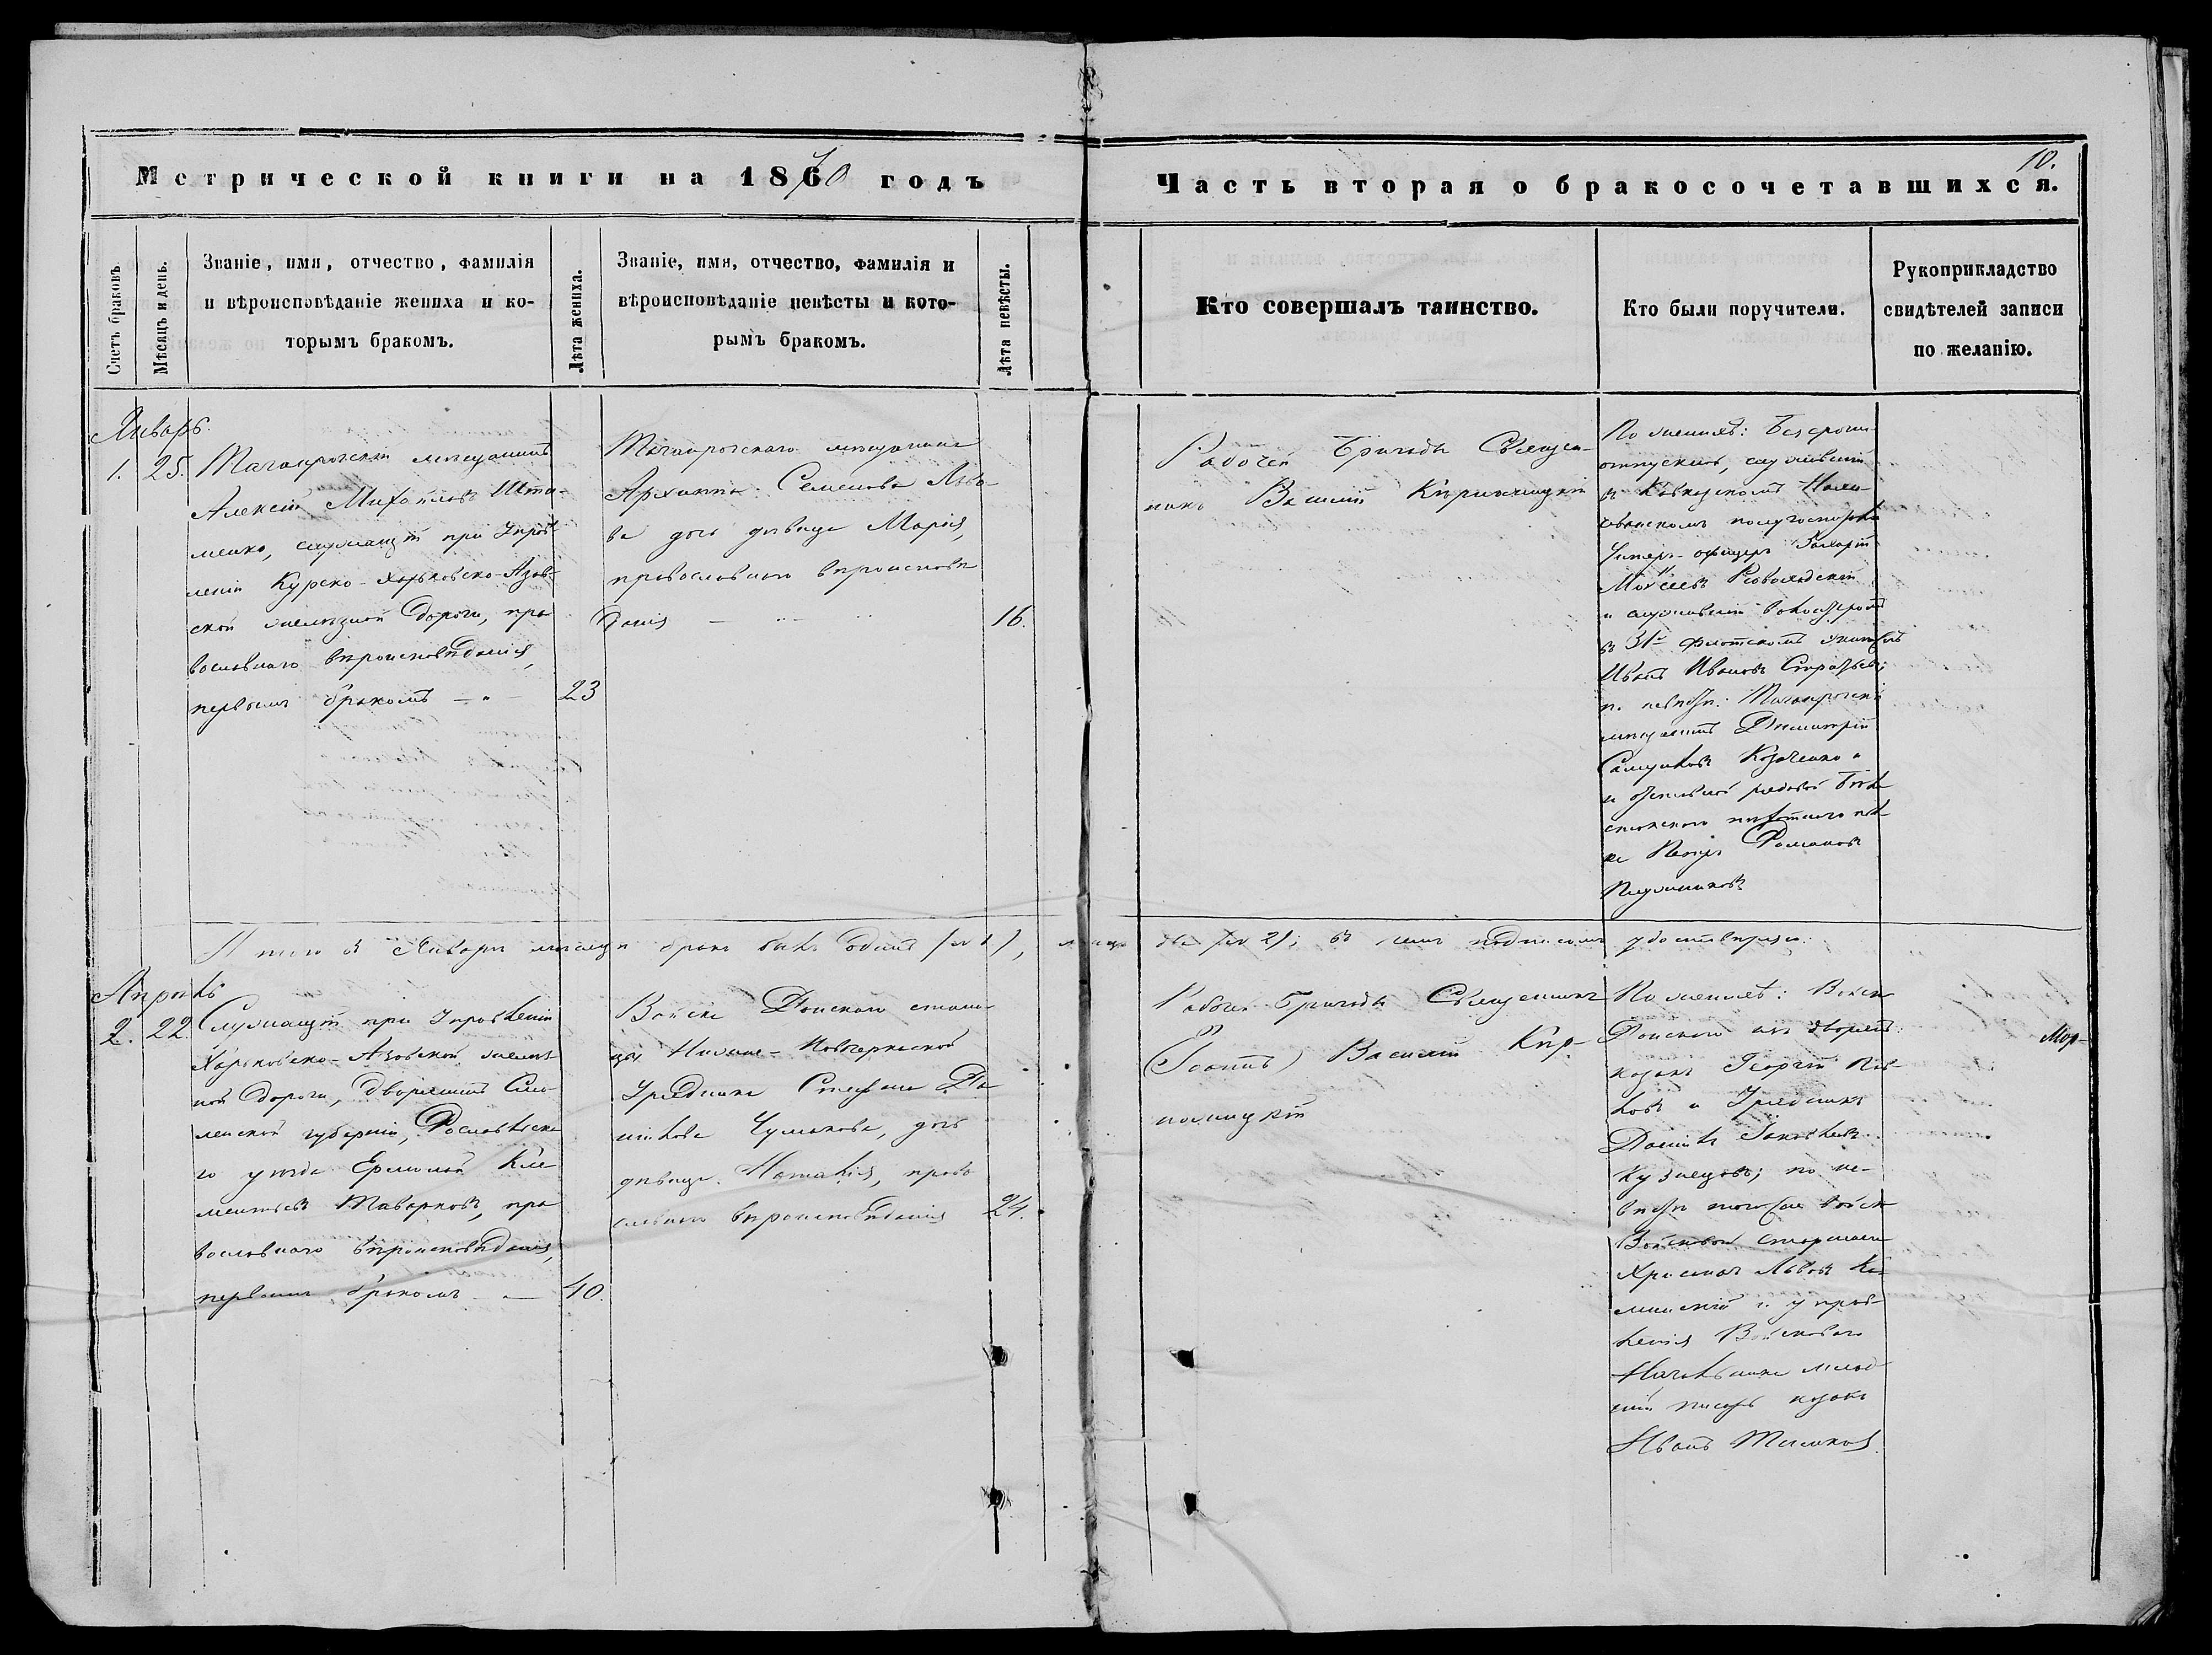 10.
Метрической книги на 1870 годъ
Часть вторая о бракосочетавшихся.
Счетъ браковъ.
Мѣсяцъ и день.
Званіе, имя, отчество, фамилія
и вѣроисповѣданіе жениха и ко-
торымъ бракомъ.
Лѣта жениха.
Званіе, имя, отчество, фамилія и
вѣроисповѣданіе невѣсты и кото-
рымъ бракомъ.
Лѣта невѣсты.
Кто совершалъ таинство.
Кто были поручители.
Рукоприкладство
свидѣтелей записи
по желанію.
Январь.
1. 25. Таганрогскій мѣщанинъ
Алексій Михаиловъ
менко, служащій при Управ-
леніи Курско-Харьковско-Азов-
ской желѣзной дороги, пра
вославнаго вѣроисповѣданія,
первымъ бракомъ — 23
Таганрогскаго мѣщанина
Архиппа Семенова
ва дочь дѣвица Марія,
православнаго вѣроисповѣ
данія — 16.
Рабочей Бригады Священ-
никъ Василій
По женихѣ:
отпускной, служившій
въ Кавказскомъ
Унтеръ-офицеръ Захарій
Моѵсеевъ
и служившій
въ 31м флотскомъ экипажѣ
Иванъ Ивановъ
п. невѣстѣ: Таганрогскій
мѣщанинъ Димитрій
Самуиловъ Козаченко и
рядовой
пѣхотнаго пол-
ка Петръ Романовъ
Итого въ Январѣ мѣсяцѣ бракъ былъ одинъ (1), лицъ два (2); въ чемъ подписомъ удостовѣряемъ:
Апрѣль
2. 22. Служащій при Управленіи
Харьковско-Азовской желѣз
ной дороги, дворянинъ Смо-
ленской губерніи, Рославльска
го уѣзда Ермилай Кле
ментьевъ Таварковъ, пра
вославнаго вѣроисповѣданія,
первымъ бракомъ — 40.
Войска Донскаго стани-
цы Нижне-Новочеркаской
Урядника Стефана Да
нилова Чумакова, дочь
дѣвица Наталія, право
славнаго вѣроисповѣданія 24.
Рабочей Бригады Священникъ
(Іоаннъ) Василій Кир-
По женихѣ: Войска
Донскаго изъ дворянъ
козакъ Георгій Пав-
ловъ и Урядникъ
Даніилъ Іаковлевъ
Кузнецовъ; по не-
вѣстѣ того же Войска
Войсковой старшина
Львовъ Ка-
минскій и управ-
ленія Войсковаго
Начальника млад-
шій писарь козакъ
Иванъ
Мор-